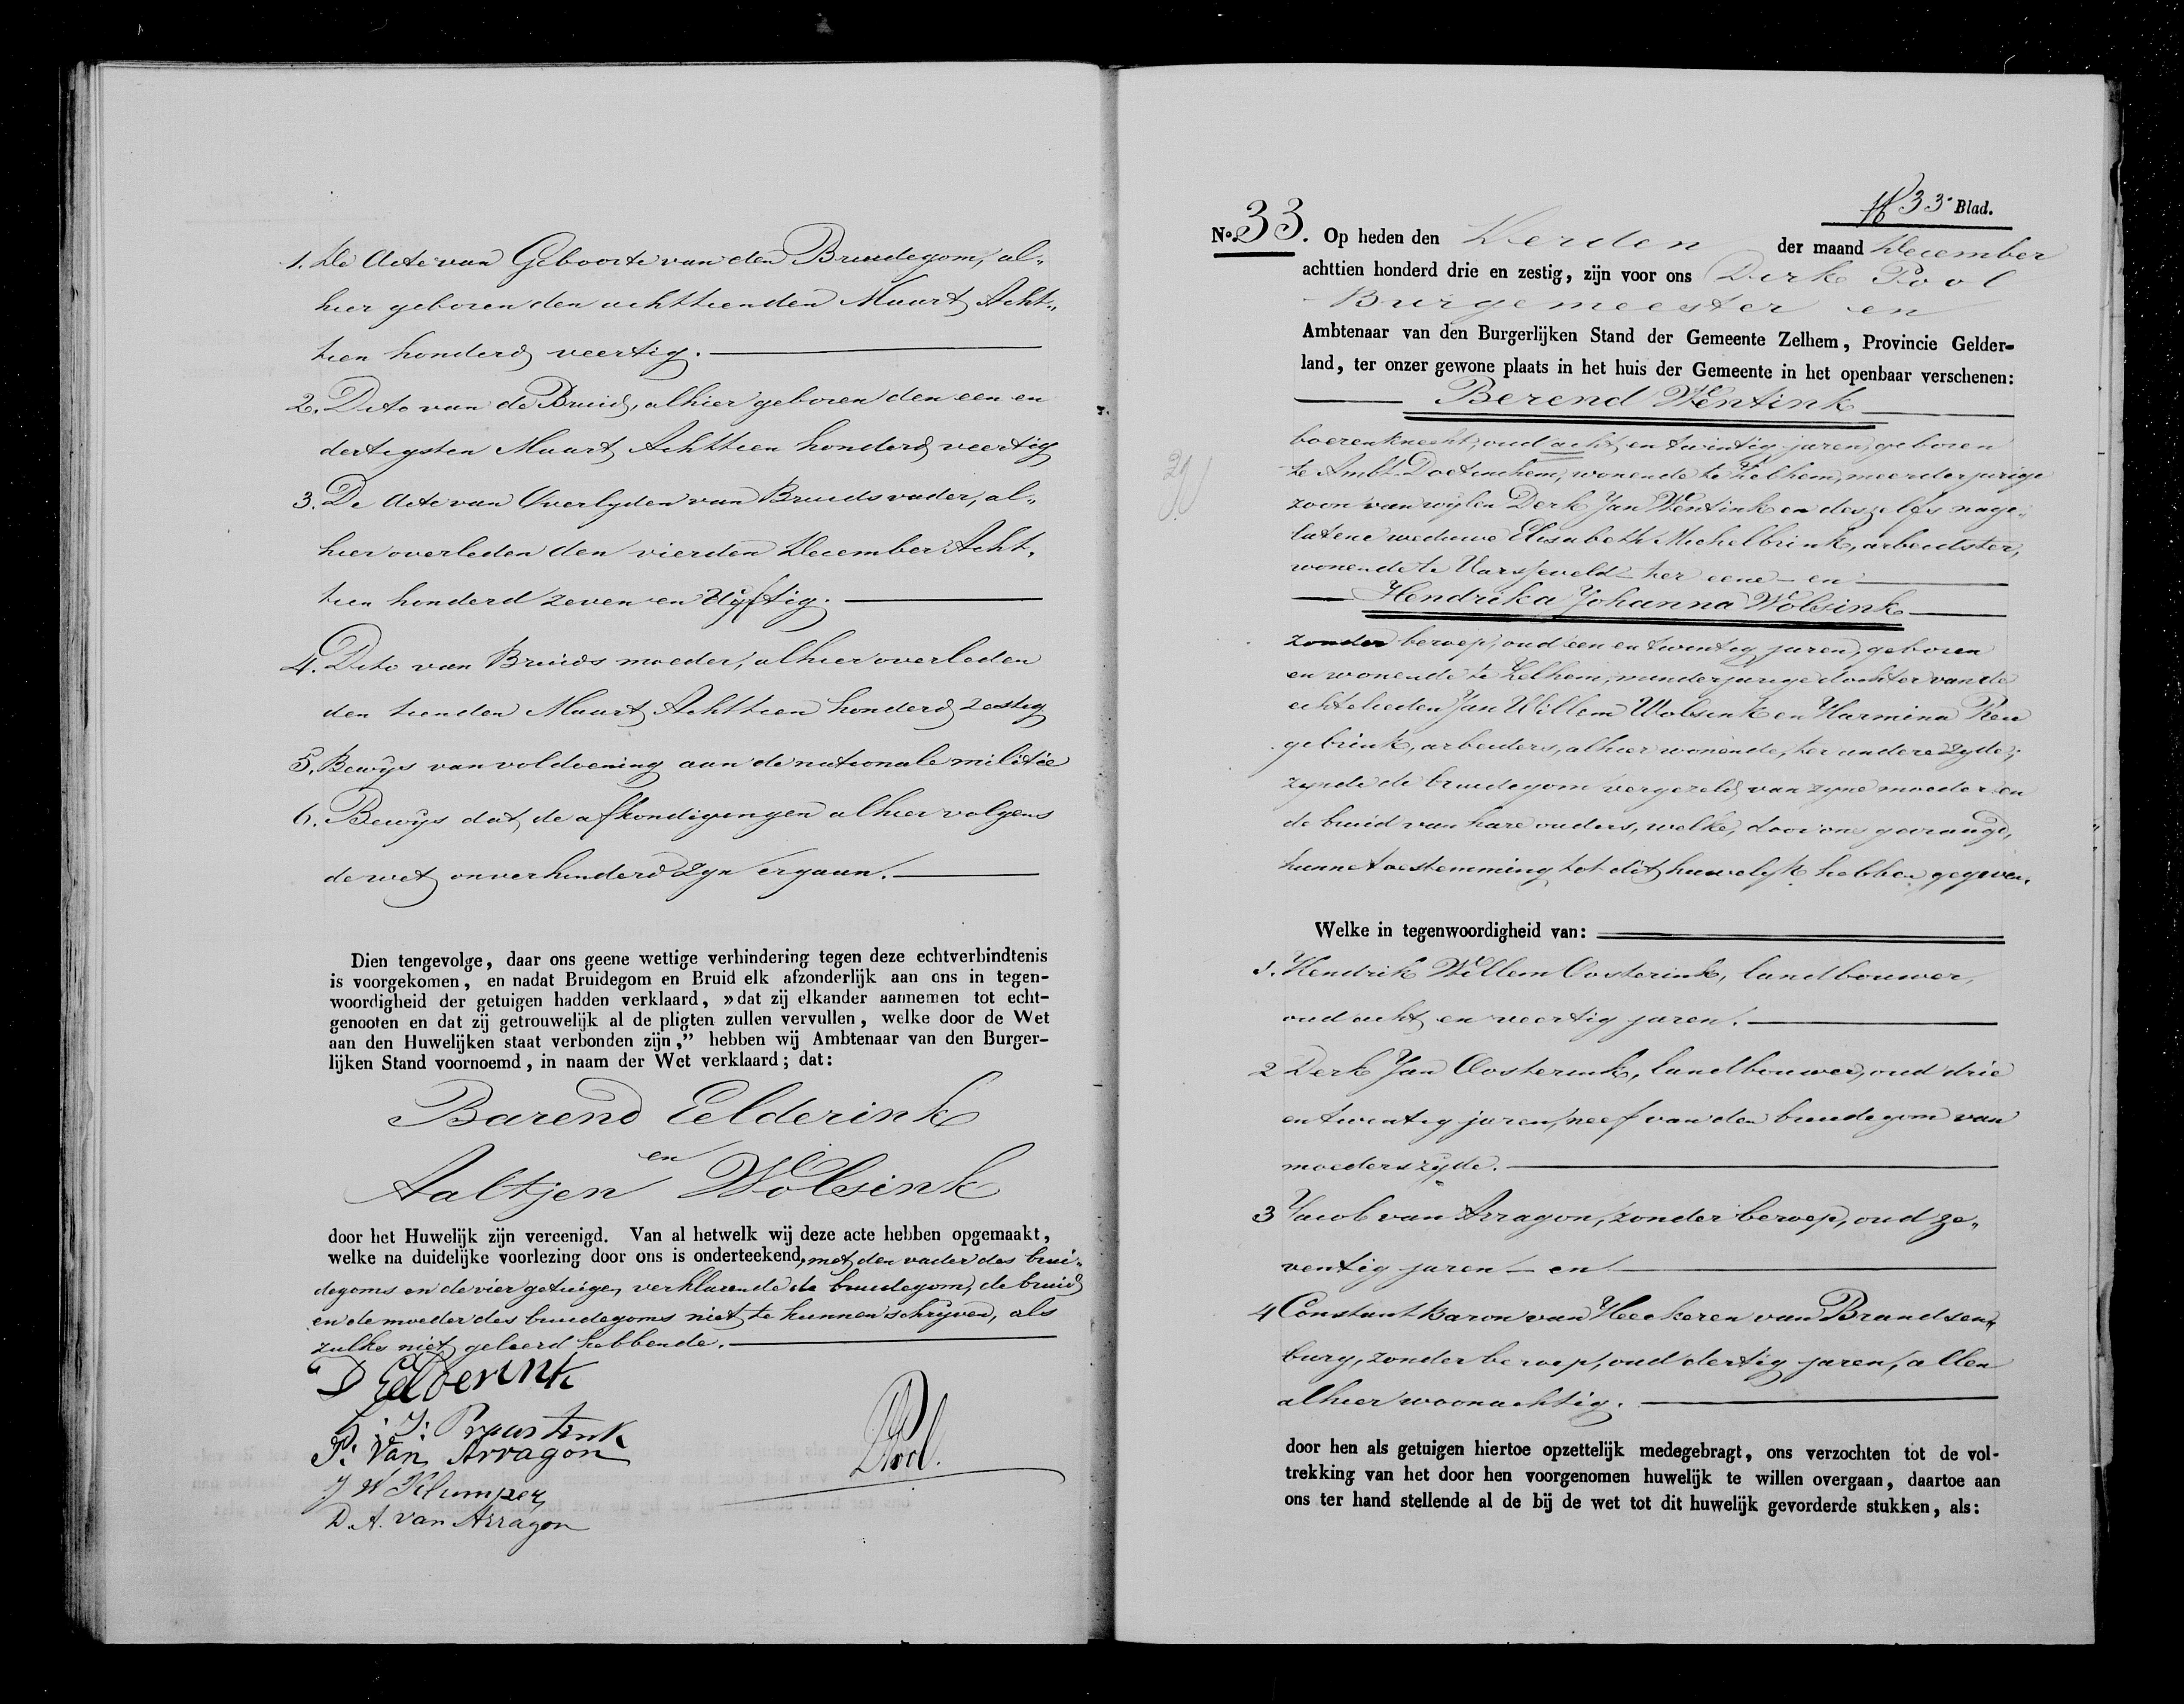 1. De Acte van Geboorte van den Bruidegom, al„
hier geboren den achttienden Maart Acht„
tien honderd veertig.
2. Dito van de Bruid, alhier geboren den een en
dertigsten Maart Achttien honderd veertig
3. De Acte van Overlyden van Bruids vader, al„
hier overleden den vierden December Acht„
tien honderd zeven en Vyftig.
4. Dito van Bruids moeder, alhier overleden
den tienden Maart Achttien honderd zestig
5. Bewys van voldoening aan de nationale militie
6. Bewys dat de afkondigingen alhier volgens
de wet onverhinderd zyn ergaan.
Dien tengevolge, daar ons geene wettige verhindering tegen deze echtverbindtenis
is voorgekomen, en nadat Bruidegom en Bruid elk afzonderlijk aan ons in tegen-
woordigheid der getuigen hadden verklaard, »dat zij elkander aannemen tot echt-
genooten en dat zij getrouwelijk al de pligten zullen vervullen, welke door de Wet
aan den Huwelijken staat verbonden zijn,” hebben wij Ambtenaar van den Burger-
lijken Stand voornoemd, in naam der Wet verklaard; dat:
Barend Eelderink
en
Aaltjen Wolsink
door het Huwelijk zijn vereenigd. Van al hetwelk wij deze acte hebben opgemaakt,
welke na duidelijke voorlezing door ons is onderteekend, met den vader des brui„
degoms en de vier getuigen, verklarende de bruidegom, de bruid
en de moeder des bruidegoms niet te kunnen schryven, als
zulks niet geleerd hebbende.
D Eelderink
P. van Arragon
J W Klumper
D. A. van Arragon
Pool.
33e Blad.
No. 33. Op heden den Derden der maand December
achttien honderd drie en zestig, zijn voor ons Derk Pool
Burgemeester en
Ambtenaar van den Burgerlijken Stand der Gemeente Zelhem, Provincie Gelder-
land, ter onzer gewone plaats in het huis der Gemeente in het openbaar verschenen:
Berend Wentink
boerenknecht, oud acht en twintig jaren, geboren
te Ambt-Doetinchem, wonende te Zelhem, meerderjarige
zoon van wylen Derk Jan Wentink en deszelfs nage„
latene weduwe Elisabeth Michelbrink, arbeidster,
wonende te Varsseveld ter eene - en
Hendrika Johanna Wolsink
zonder beroep, oud een en twintig jaren, geboren
en wonende te Zelhem, minderjarige dochter van de
echtelieden Jan Willem Wolsink en Harmina Ren
gebrink, arbeiders, alhier wonende, ter andere zyde;
zynde de bruidegom vergezeld van zyne moeder en
de bruid van hare ouders, welke, door ons gevraagd,
hunne toestemming tot dit huwelyk hebben gegeven.
Welke in tegenwoordigheid van:
1. Hendrik Willem Oosterink, landbouwer,
oud acht en veertig jaren.
2 Derk Jan Oosterink, landbouwer, oud drie
en twintig jaren, neef van den bruidegom van
moederszyde.
3 Jacob van Arragon, zonder beroep, oud ze„
ventig jaren - en
4 Constant Baron van Heeckeren van Brandsen„
burg, zonder beroep, oud dertig jaren, allen
alhier woonachtig.
door hen als getuigen hiertoe opzettelijk medegebragt, ons verzochten tot de vol-
trekking van het door hen voorgenomen huwelijk te willen overgaan, daartoe aan
ons ter hand stellende al de bij de wet tot dit huwelijk gevorderde stukken, als: